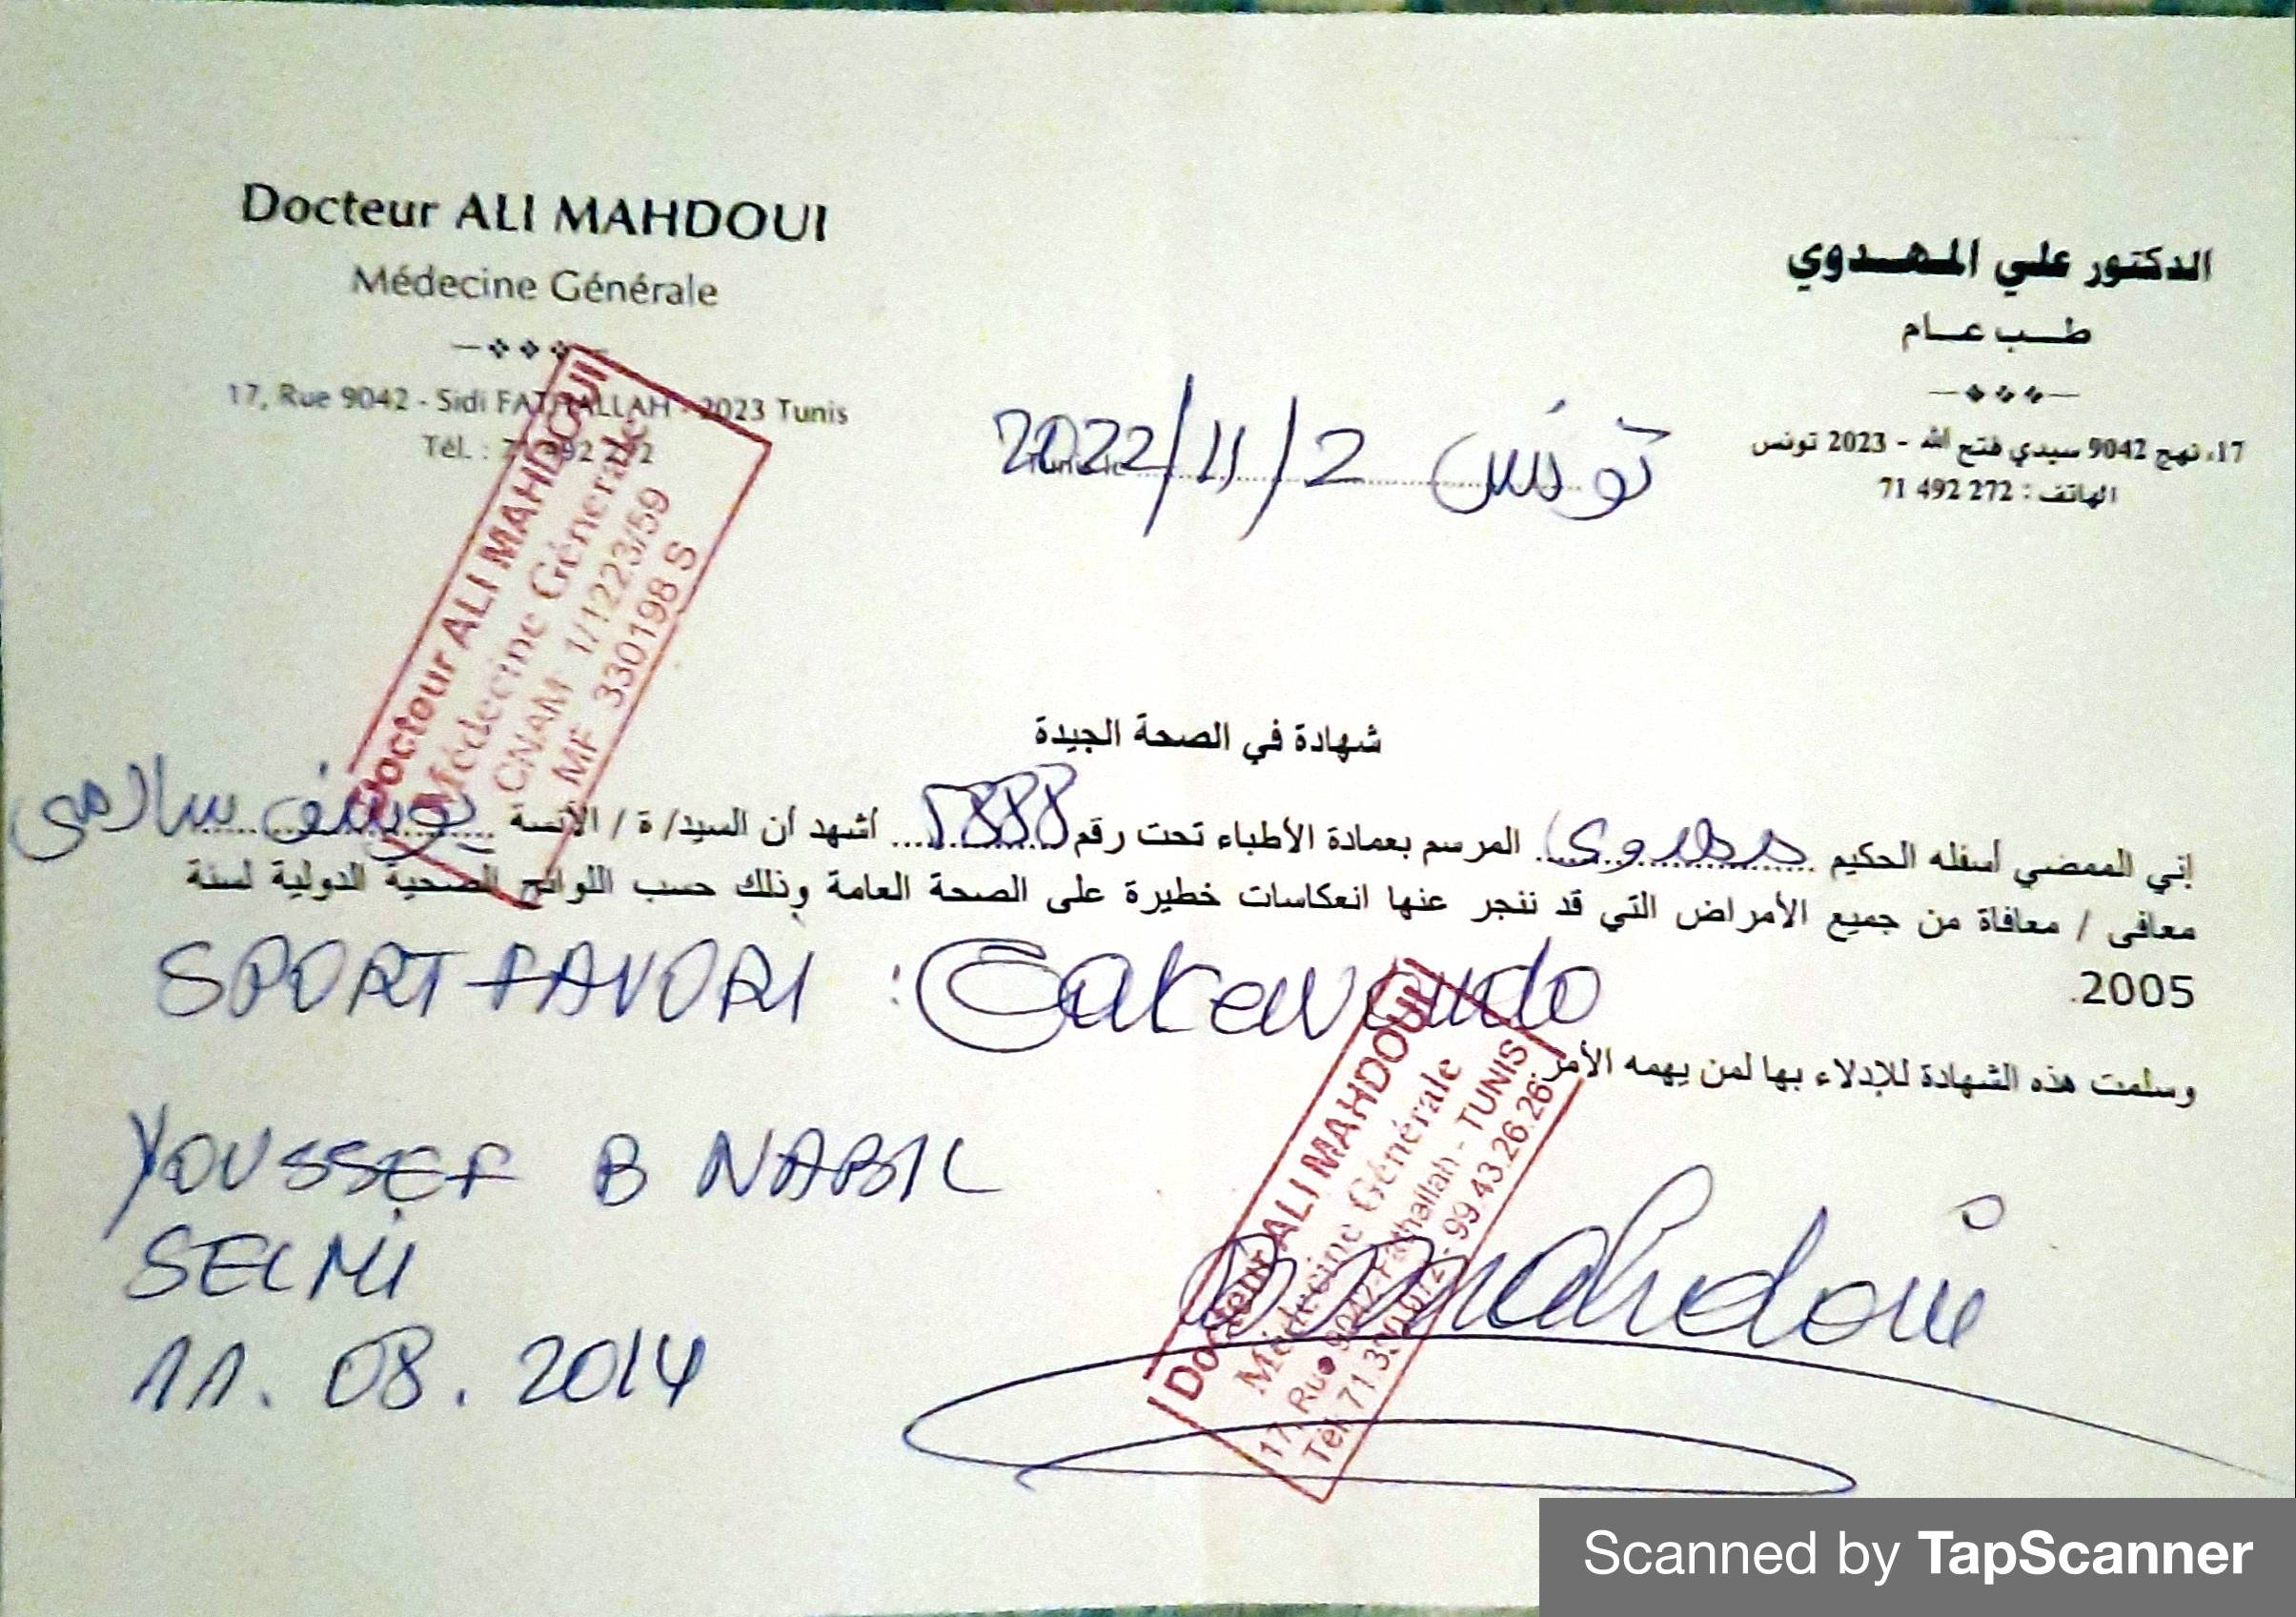 Docteur ALI MAHDOUI
Médecine Générale
17, Rue 9042 - Sidi FATHALLAH - 2023 Tunis
Tél. : 71 492 272
الدكتور علي المهدوي
طب عام
17، نهج 9042 سيدي فتح الله - 2023 تونس
الهاتف : 272 492 71
تونس 2022/11/2
Docteur ALI MAHDOUI
Médecine Générale
CNAM 1/1223/59
MF 330198 S
شهادة في الصحة الجيدة
إني الممضي أسفله الحكيم مهدوي المرسم بعمادة الأطباء تحت رقم أشهد أن السيد/ ة / الآنسة يوسف سالمي
معافى / معافاة من جميع الأمراض التي قد ننجر عنها انعكاسات خطيرة على الصحة العامة وذلك حسب اللوائح الصحية الدولية لسنة
2005.
SPORT FAVORI : Taekwondo
وسلمت هذه الشهادة للإدلاء بها لمن يهمه الأمر.
YOUSSEF B NABIL
SELMI
11.08.2014
Docteur ALI MAHDOUI
Médecine Générale
17, Rue 9042 Fathallah - TUNIS
99.43.26.26
mahdoui
Scanned by TapScanner